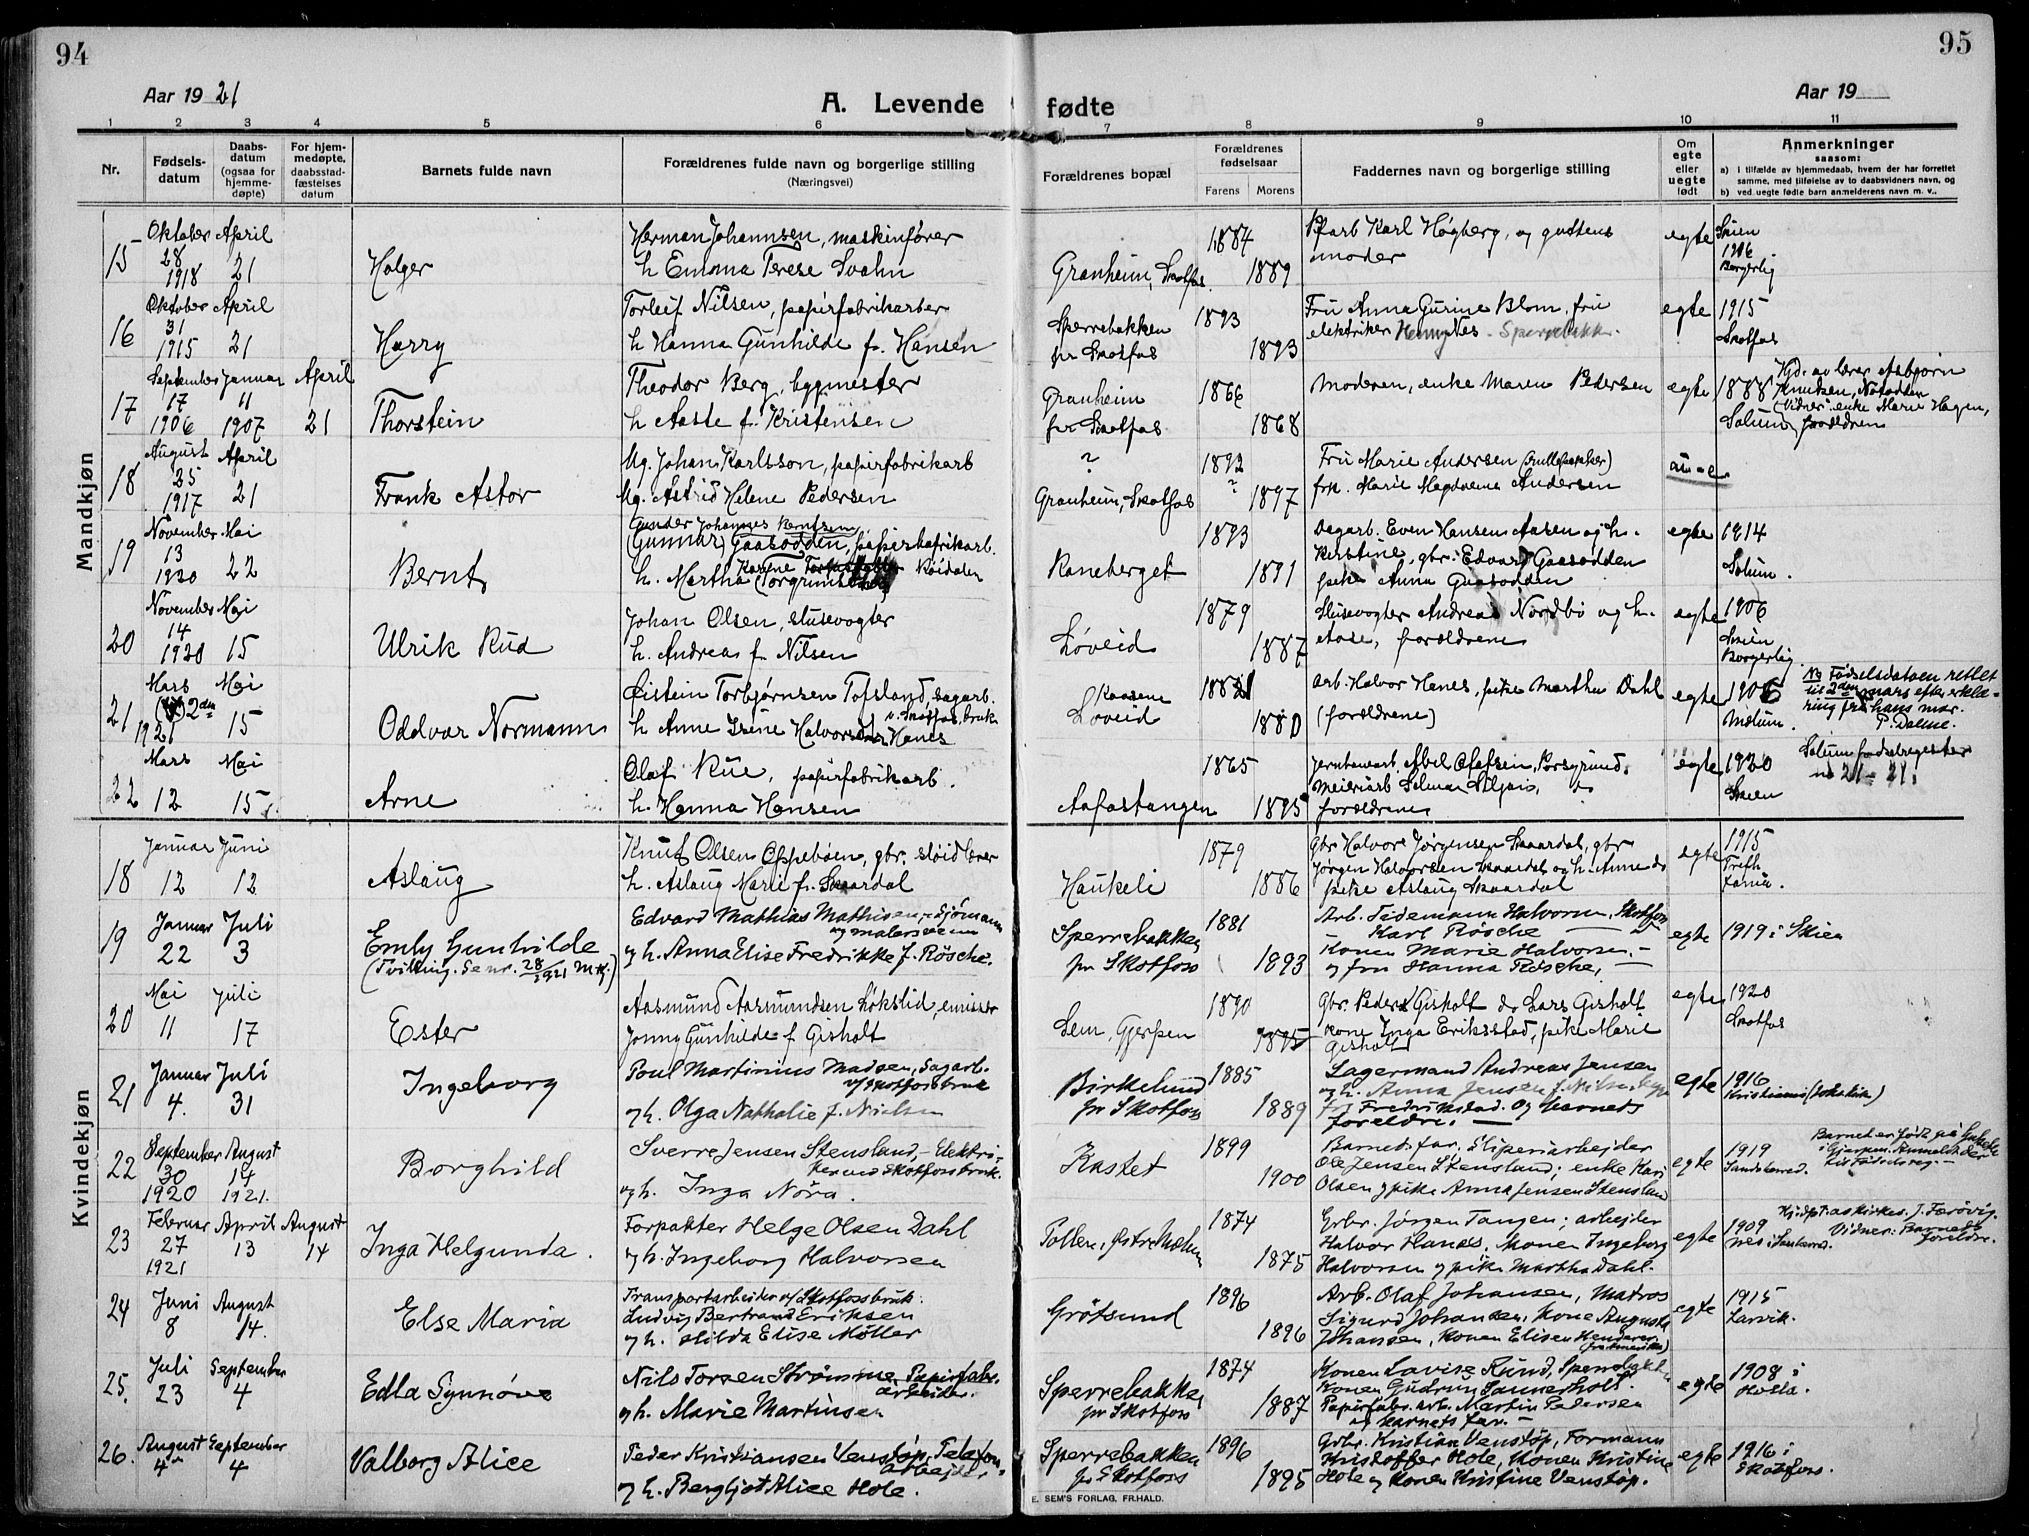 94
95
Aar 1921
A. Levende fødte
Aar 19
1 2 3 4 5 6 7 8 9 10 11
Nr.
Fødsels-
datum
Daabs-
datum
(ogsaa for
hjemme-
døpte)
For hjem-
medøpte,
daabsstad-
fæstelses
datum
Barnets fulde navn
Forældrenes fulde navn og borgerlige stilling
(Næringsvei)
Forældrenes bopæl
Forældrenes
fødselsaar
Farens Morens
Faddernes navn og borgerlige stilling
Om
egte
eller
uegte
født
Anmerkninger
saasom:
a) i tilfælde av hjemmedaab, hvem der har forrettet
samme, med tilføielse av to daabsvidners navn, og
b) ved uegte fødte barn anmelderens navn m. v..
Mandkjøn
15 Oktober 28 1918 April 21
Holger
Herman Johannsen, maskinfører
h. Emma Terese Svahn
Granheim, Skotfos.
1884 1889
Karl Høgberg, og guttens
moder
egte
Skien
1916
Borgerlig
16 Oktober 31 1915 April 21
Harry
Torleif Nilsen, papirfabrikarber
h. Hanna Gunhilde f. Hansen
Sperrebakken
pr Skotfos
1893 1893
Fru Anna Gurine Blom, fru
elektriker Henny Nes - Sperrebakk.
egte
1915
Skotfos
17 September 17 1906 Januar 11 1907 April 21
Thorstein
Theodor Berg, bygmester
h. Aaste f. Kristensen
Granheim
pr Skotfos
1866 1868
Moderen, enke Maren Pedersen
egte
1888
Solum
Hjd. av lærer Asbjørn
Knutsen, Notodden
Vidner: enke Marie Hagen,
forældrene
18 August 25 1917 April 21
Frank Astor
Ug. Johan Karlsson, papirfabrikarb
Ug. Astrid Helene Pedersen
?
Granheim, Skotfos
1892 ? 1897
Fru Marie Andersen
frk. Marie Magdalene Andersen
19 November 13 1920 Mai 22
Bernt
Gunder Johannes Berntsen
(Gunnar) Gaasodden, papirfabrikarb.
h. Martha
Raneberget
1893 1891
Dagarb. Even Hansen Aasen og h.
Kirstine, gbr. Edvard Gaasodden
pike Anna Gaasodden
egte
1914
Solum.
20 November 14 1920 Mai 15
Ulrik Rud
Johan Olsen, slusevogter
h. Andrea f. Nilsen
Løveid
1879 1887
Slusevogter Andreas Nordbø og h.
Aase, forældrene
egte
1906
Skien
Borgerlig
21 Mars 2den 1921 Mai 15
Oddvar Normann
Eistein Torbjørnsen Tofsland, sagarb.
v. Skotfos bruk
h Anne Irene Halvorsdtr Hanes
Løveid
1882 1880
Arb. Halvor Hanes, pike Martha Dahl
(forældrene)
egte
1906
Mælum.
Fødselsdatoen rettet
til 2den mars efter erklæ-
ring fra hans mor.
22 Mars 12 Mai 15
Arne
Olaf Rue, papirfabrikarb.
h. Hanna Hansen
Aafostangen
1865 1895
Abel Olefsen, Porsgrund.
forældrene
egte
1920
Skien
Solum fødselsregister
nr 21 - 21.
Kvindekjøn
18 Januar 12 Juni 12
Aslaug
Knut Olsen Oppebøen, gbr. sløidlærer
h. Aslaug Marie f. Skaardal
Haukeli
1879 1886
Gbr Halvor Jørgensen Skaardal, gbr
Jørgen Halvorsen Skaardal og h. Anne do
pike Aslaug Skaardal
egte
1915
19 Januar 22 Juli 3
Emly Gunhilde
(Tvilling. Se nr. 28/1921 M.kj.)
Edvard Mathias Mathisen, - Sjømann
og malersvenn
og h. Anna Elise Fredrikke f. Røsche.
Sperrebakken
pr. Skotfoss
1881 1893
Arb. Tidemann Halvorsen, Skotfoss
Karl Røsche
Konen Marie Halvorsen. -
og fru Hanna Røsche, -
egte
1919 i Skien
20 Mai 11 Juli 17
Ester
Aasmund Aasmundsen Løkslid, emissær
Jonny Gunhilde f Gisholt
Sem, Gjerpen
1890 1895
Gbr. Peder Gisholt do Lars Gisholt
Kone Inga Eriksstad, pike Marie
Gisholt
egte
1920
Skotfos
21 Januar 4. Juli 31
Ingeborg
Poul Martinius Madsen, Sagarb.
v/ Skotfossbruk
og h. Olga Nathalie f. Nielsen
Birkelund
pr Skotfoss
1885 1889
Lagermand Andreas Jensen
og h. Anna Jensen f. Nilsen, begge
fra Fredrikstad. Og barnets
foreldre. -
egte
1916
22 September 30 1920 August 14 1921.
Borghild
Sverre Jensen Stensland, - Elektri-
ker ved Skotfossbruk.
og h. Inga Nóra.
Kastet
1899 1900
Barnets far, Sliperiarbejder
Ole Jensen Stensland; enke Kari
Olsen og pike Anna Jensen Stensland
egte
1919
Sandsherred.
Barnet er født på
i Gjerpen. Anmeldt der
til fødselsreg. -
23 Februar 27 1921 April 13 August 14
Inga Helgunda.
Forpakter Helge Olsen Dahl
og h. Ingeborg Halvorsen
Pollen, østre Mælum
1874 1875
Grbr. Jørgen Tangen; arbejder
Halvor Hanes, Konen Ingeborg
Halvorsen og pike Martha Dahl.
egte
1909
Hjdpt. av kirkes. J. Farøvig.
Vidner: Barnets
foreldre.
24 Juni 8 August 14.
Else Maria
Transportarbeider v/ Skotfossbruk.
Ludvig Bertrand Eriksen
og h. Hilda Elise Møller
Grötsund
1896 1896
Arb. Olaf Johansen, Matros
Sigurd Johansen, Kone Augusta
Johansen, Konen Elisen
egte
1915
Larvik.
25. Juli 23 September 4
Edla Synnöve
Nils Torsen Strømme, Papirfabr.
arbeider.
og h. Marie Martinsen
Sperrebakken
pr Skotfoss
1874 1887
Konen Lovise Rund, Sperrebakk
Konen Gudrun Sannerholt.
Papirfabr. arb. Martin Pedersen
og barnets far. -
egte
1908 i
Holla.
26. August 4. September 4
Valborg Alice
Peder Kristiansen Venstøp, Telefon-
arbejder,
og h. Bergljot Alice Hole.
Sperrebakken
pr Skotfoss
1896 1895
Grbr. Kristian Venstøp, Formann
Kristoffer Hole, Konen Kristine
Hole og Konen Kristine Venstøp.
egte
1916 i
Skotfoss.
E. SEM'S FORLAG, FR.HALD.